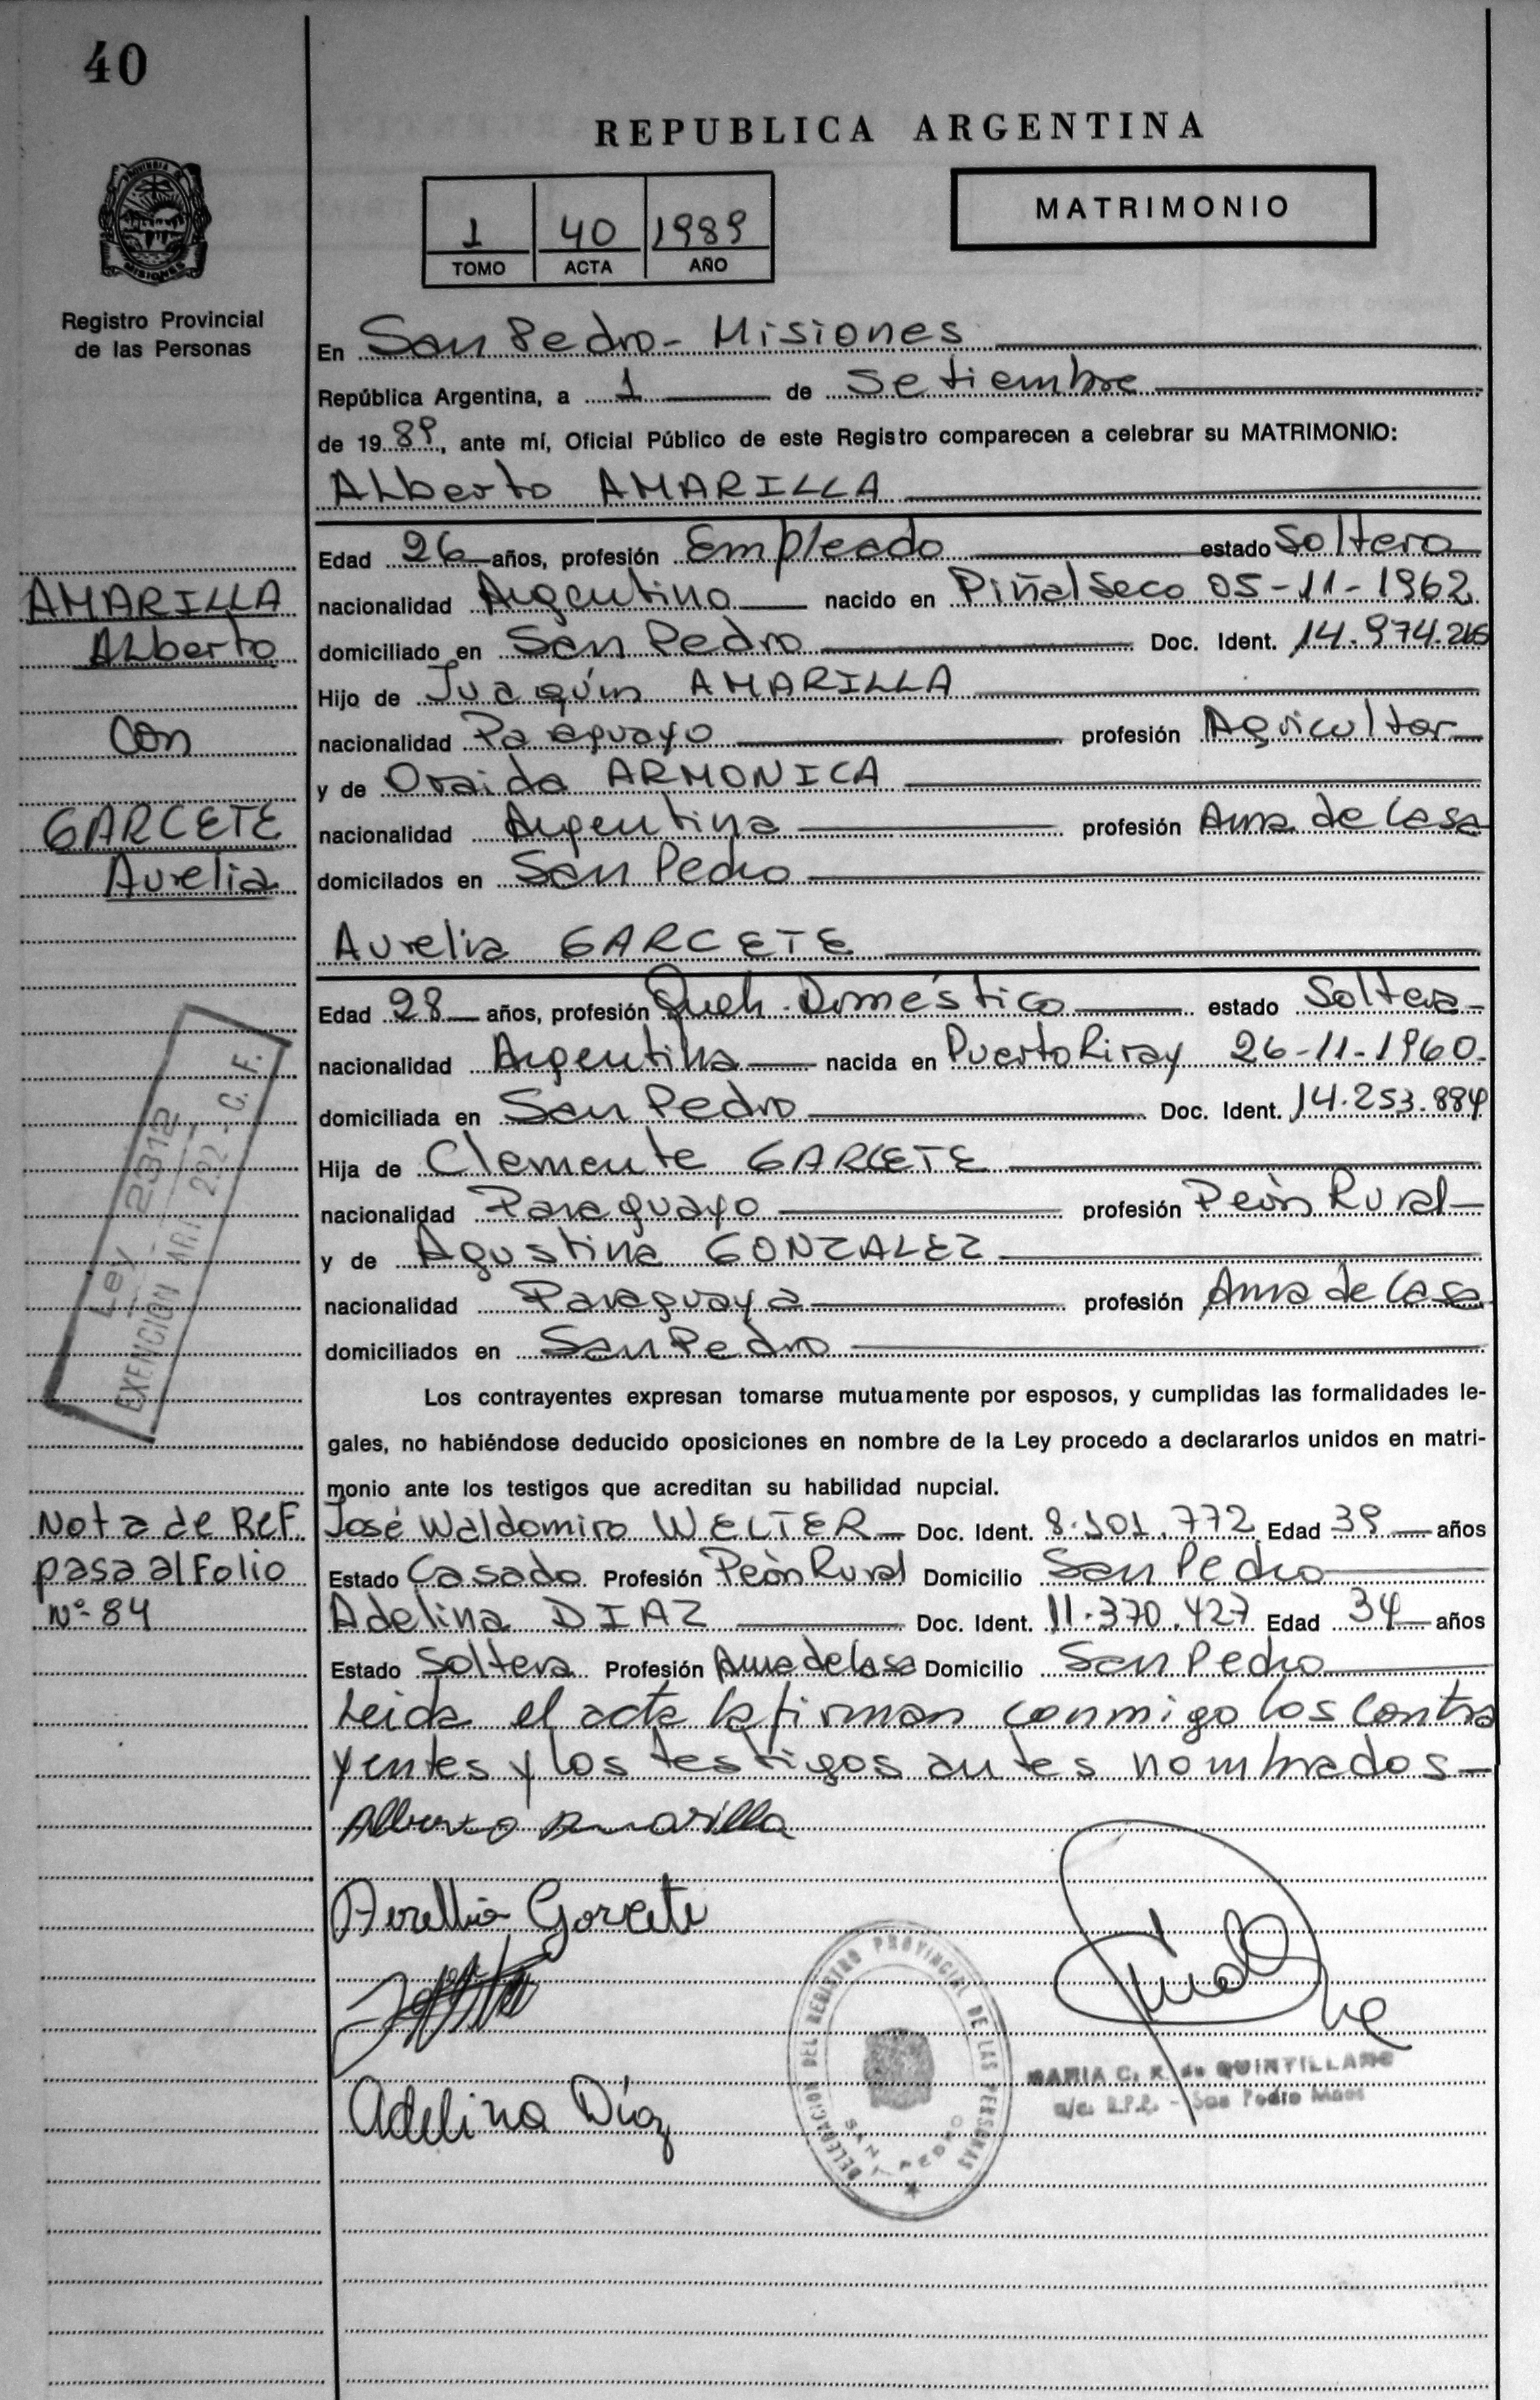 40
REPUBLICA ARGENTINA
PROVINCIA DE
MISIONES
Registro Provincial
de las Personas
1 40 1989
TOMO ACTA AÑO
MATRIMONIO
En San Pedro - Misiones
República Argentina, a 1 de Setiembre
de 1989, ante mí, Oficial Público de este Registro comparecen a celebrar su MATRIMONIO:
Alberto AMARILLA
Edad 26 años, profesión Empleado estado Soltero
AMARILLA
nacionalidad Argentino nacido en Piñalseco 05-11-1962
Alberto
domiciliado en San Pedro Doc. Ident. 14.974.
Hijo de Juaquín AMARILLA
con
nacionalidad Paraguayo profesión Agricultor
y de Oraida ARMONICA
GARCETE
nacionalidad Argentina profesión Ama de Casa
Aurelia
domicilados en San Pedro
Aurelia GARCETE
Edad 28 años, profesión Queh. Doméstico estado Soltera
nacionalidad Argentina nacida en Puerto Piray 26-11-1960
domiciliada en San Pedro Doc. Ident. 14.253.884
Hija de Clemente GARCETE
nacionalidad Paraguayo profesión Peón Rural
y de Agustina GONZALEZ
nacionalidad Paraguaya profesión Ama de Casa
domiciliados en San Pedro
Ley 2312
EXENCION ART. 222 - C. F.
Los contrayentes expresan tomarse mutuamente por esposos, y cumplidas las formalidades le-
gales, no habiéndose deducido oposiciones en nombre de la Ley procedo a declararlos unidos en matri-
monio ante los testigos que acreditan su habilidad nupcial.
Nota de Ref.
pasa al Folio
Nº 84
José Waldomiro WELTER Doc. Ident. 8.101.772 Edad 39 años
Estado Casado Profesión Peón Rural Domicilio San Pedro
Adelina DIAZ Doc. Ident. 11.370.427 Edad 34 años
Estado Soltera Profesión Ama de Casa Domicilio San Pedro
Leida el acta la firman conmigo los contra
yentes y los testigos antes nombrados
Alberto Amarilla
Aurellia Garcete
Adelina Díaz
DELEGACION DEL REGISTRO PROVINCIAL DE LAS PERSONAS
SAN PEDRO
MARIA C. R. de QUINTILLANO
a/c. R.P.P. - San Pedro Mnes